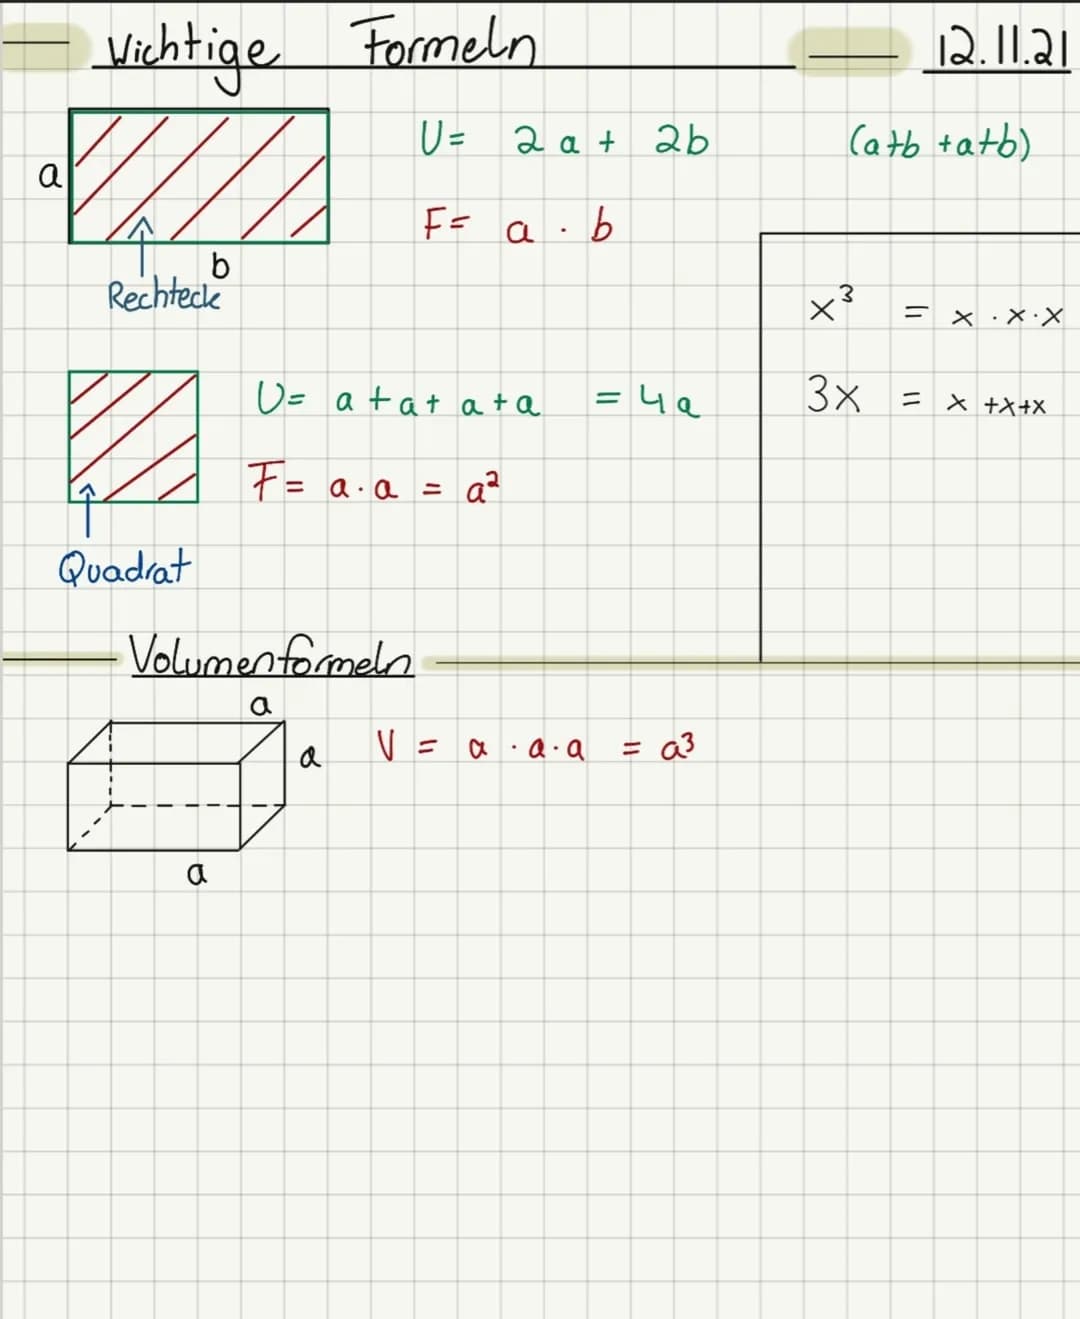 Wichtige Formeln 12.11.21
a
U= 2a + 2b (a+b +a+b)
F= a · b
b
Rechteck
x³ = x · x · x
3x = x +x+x
U= a + a + a + a = 4a
F= a · a = a²
Quadrat
Volumenformeln
a
a
V = a · a · a = a³
a